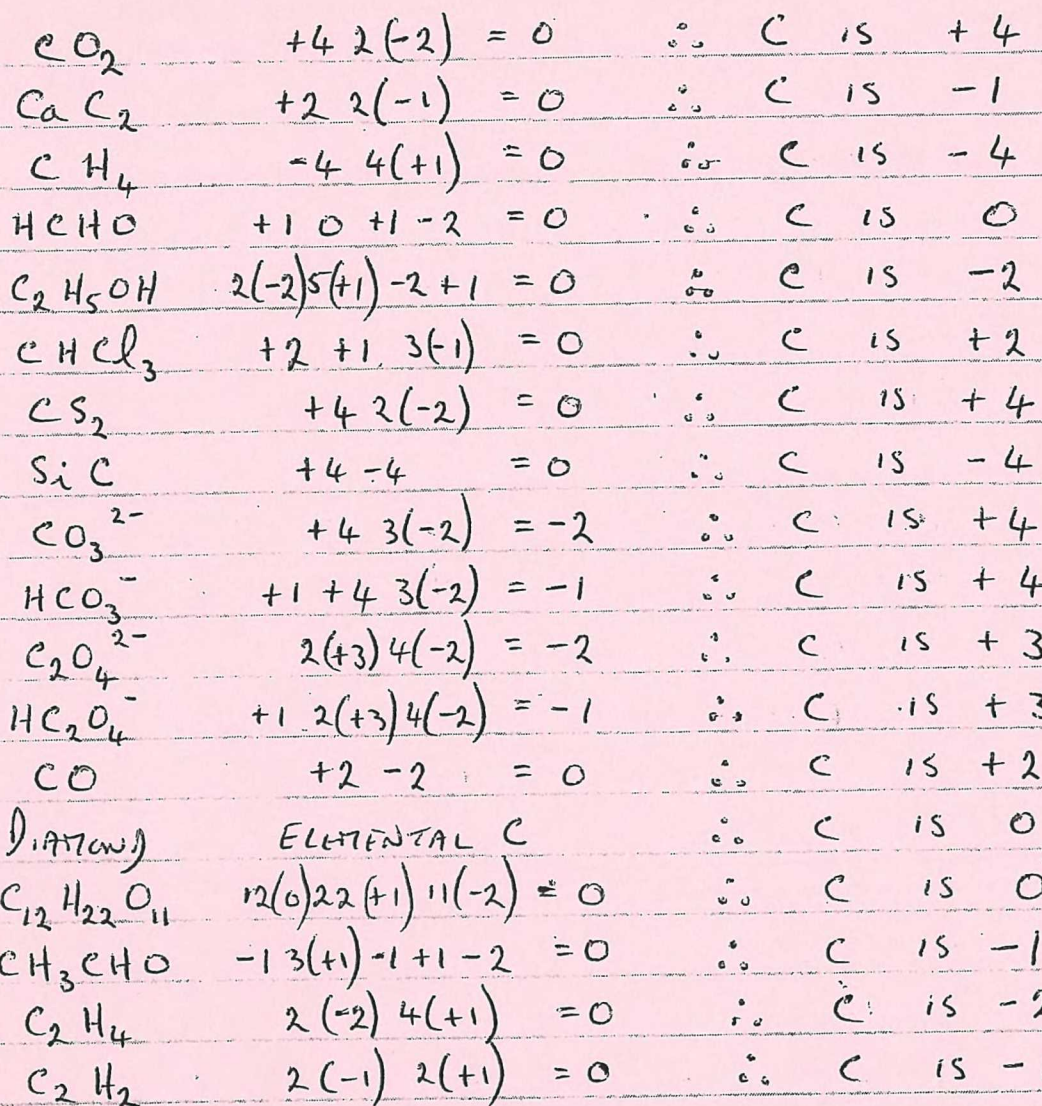 CO₂ +4 2(-2) = 0 ∴ C is +4
CaC₂ +2 2(-1) = 0 ∴ C is -1
CH₄ -4 4(+1) = 0 ∴ C is -4
HCHO +1 0 +1 -2 = 0 ∴ C is 0
C₂H₅OH 2(-2)5(+1) -2 +1 = 0 ∴ C is -2
CHCl₃ +2 +1 3(-1) = 0 ∴ C is +2
CS₂ +4 2(-2) = 0 ∴ C is +4
SiC +4 -4 = 0 ∴ C is -4
CO₃²⁻ +4 3(-2) = -2 ∴ C is +4
HCO₃⁻ +1 +4 3(-2) = -1 ∴ C is +4
C₂O₄²⁻ 2(+3) 4(-2) = -2 ∴ C is +3
HC₂O₄⁻ +1 2(+3) 4(-2) = -1 ∴ C is +3
CO +2 -2 = 0 ∴ C is +2
DIAMOND ELEMENTAL C ∴ C is 0
C₁₂H₂₂O₁₁ 12(0)22(+1) 11(-2) = 0 ∴ C is 0
CH₃CHO -1 3(+1) -1 +1 -2 = 0 ∴ C is -1
C₂H₄ 2(-2) 4(+1) = 0 ∴ C is -2
C₂H₂ 2(-1) 2(+1) = 0 ∴ C is -